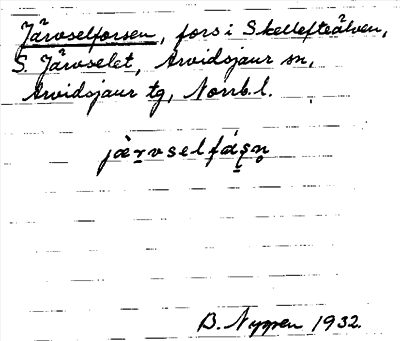 Järvselforsen, fors i Skellefteälven,
S. Järvselet, Arvidsjaur sn,
Arvidsjaur tg, Norrb. l.
jàr̠vselfás̠n̥
B. Nyman 1932.